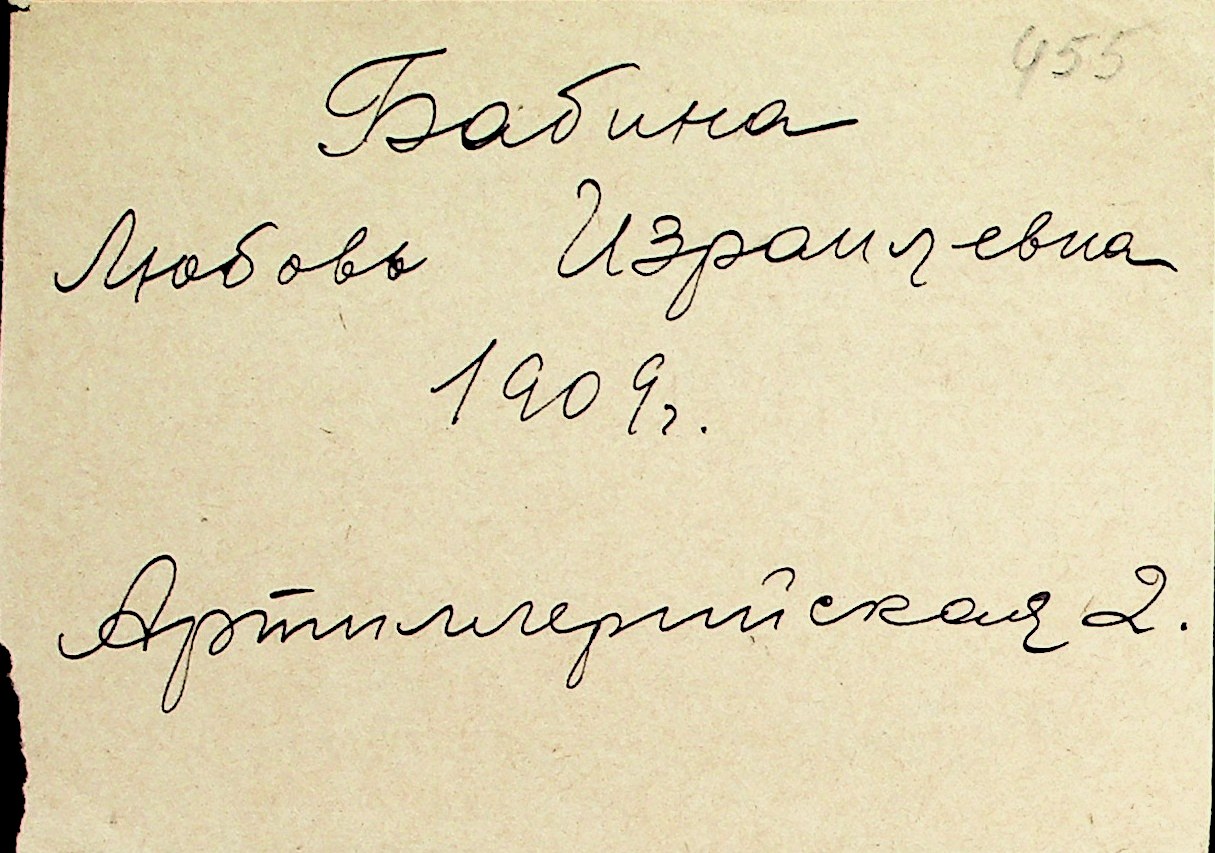 455
Бабина
Любовь Израилевна
1909г.
Артиллерийская 2.